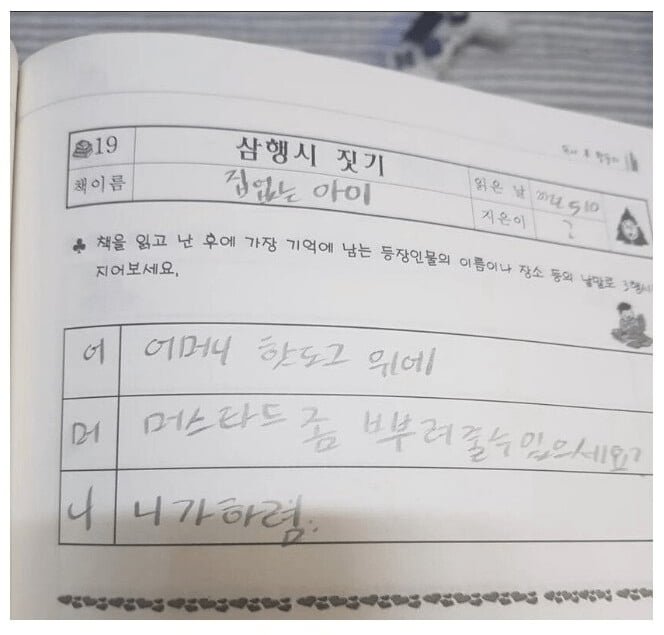 19
삼행시 짓기
책이름
집없는 아이
읽은 날
5 10
지은이
?
♣ 책을 읽고 난 후에 가장 기억에 남는 등장인물의 이름이나 장소 등의 낱말로 3행시
지어보세요.
어
어머니 핫도그 위에
머
머스타드 좀 뿌려줄수 있으세요?
니
니가하렴.